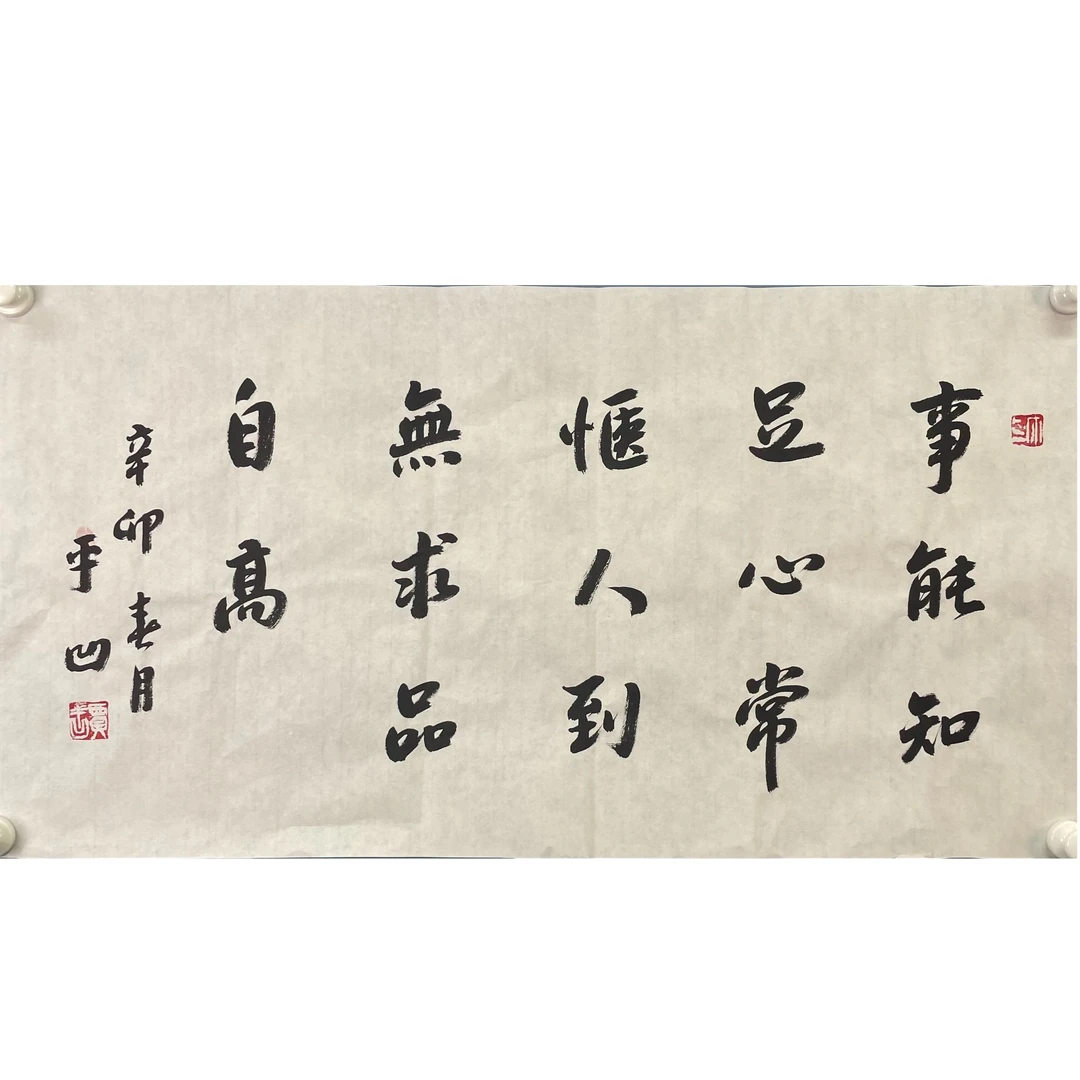 事能知
足心常
愜人到
無求品
自高
辛卯春月
平凹